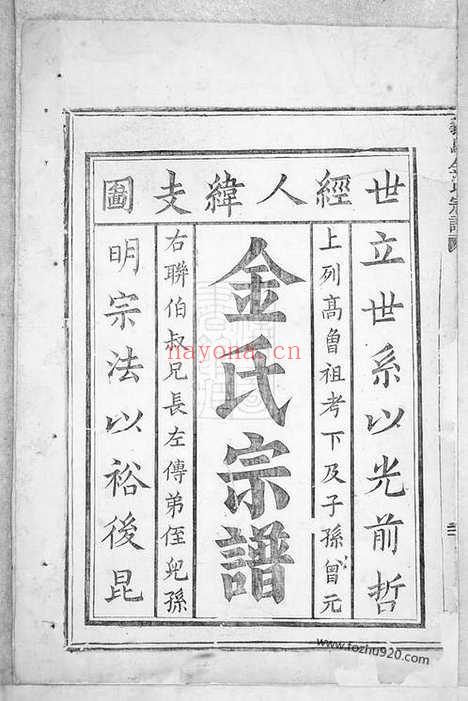 世經人緯支圖
立世系以光前哲
上列高曾祖考下及子孫曾元
金氏宗譜
右聯伯叔兄長左傳弟侄兒孫
明宗法以裕後昆
nayona.cn
www.fozhu920.com